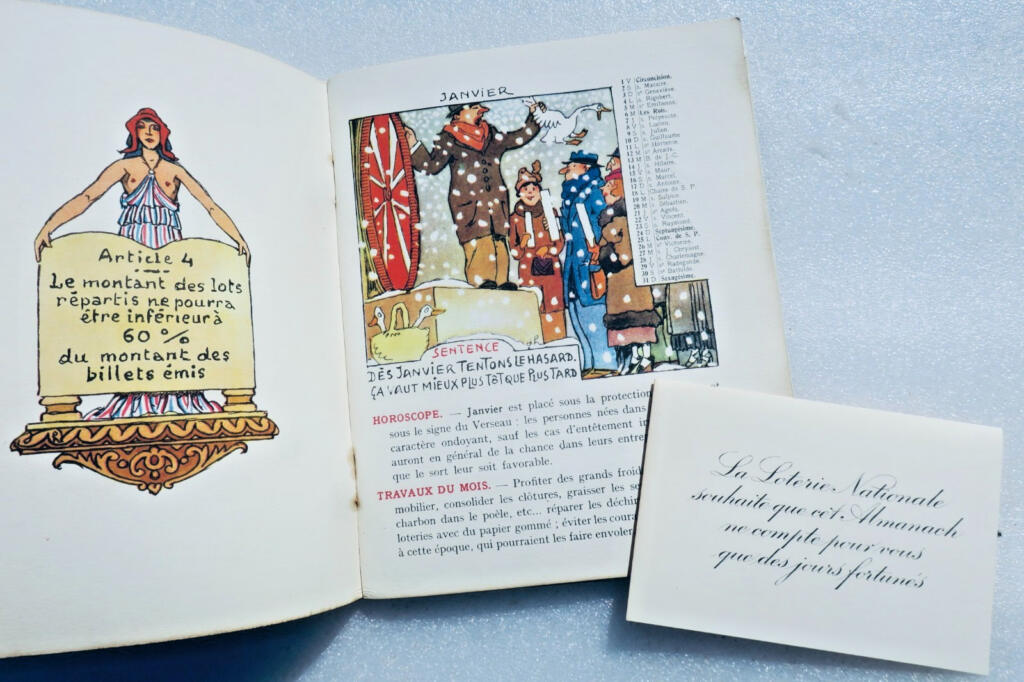 Article 4
Le montant des lots
répartis ne pourra
être inférieur à
60 %
du montant des
billets émis
JANVIER
1 V Circoncision.
2 S s. Macaire.
3 D ste Geneviève.
4 L s. Rigobert.
5 M ste Emilienne.
6 M Les Rois.
7 J s.
8 V s. Lucien.
9 S s. Julien.
10 D s. Guillaume
11 L ste Hortense.
12 M s. Arcade.
13 M B. de J.-C.
14 J s. Hilaire.
15 V s. Maur.
16 S s. Marcel.
17 D s. Antoine.
18 L Chaire de S. P.
19 M s. Sulpice.
20 M s. Sébastien.
21 J ste Agnès.
22 V s. Vincent.
23 S s. Raymond.
24 D Septuagésime.
25 L Conv. de S. P.
26 M
27 M s. J. Chrysost.
28 J s. Charlemagne.
29 V ste Radegonde.
30 S ste Bathilde.
31 D Sexagésime.
SENTENCE
DÈS JANVIER TENTONS LE HASARD.
ÇA VAUT MIEUX PLUS TÔT QUE PLUS TARD
HOROSCOPE. — Janvier est placé sous la protection
sous le signe du Verseau : les personnes nées dans
caractère ondoyant, sauf les cas d'entêtement
auront en général de la chance dans leurs
que le sort leur soit favorable.
TRAVAUX DU MOIS. — Profiter des grands
mobilier, consolider les clôtures, graisser les
charbon dans le poêle, etc... réparer les
loteries avec du papier gommé ; éviter les
à cette époque, qui pourraient les faire
La Loterie Nationale
souhaite que cet Almanach
ne compte pour vous
que des jours fortunés